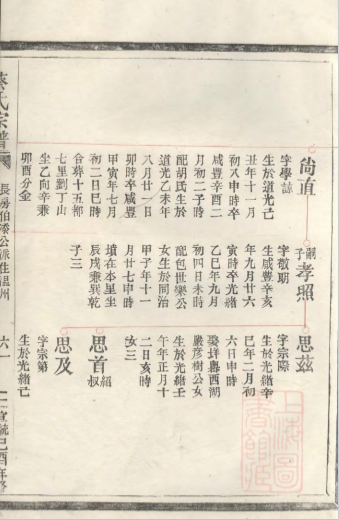 尙直
字學誌
生於道光己
丑年十一月
初八申時卒
咸豐辛酉二
月初二子時
配胡氏生於
道光乙未年
八月廿一日
卯時卒咸豐
甲寅年七月
初二日巳時
合葬十五都
七里劉丁山
坐乙向辛兼
卯酉分金
嗣子
孝照
字敬期
生咸豐辛亥
年九月廿六
寅時卒光緒
乙巳年九月
初四日未時
配包世樂公
女生於同治
甲子年十一
月廿七申時
墳在本里坐
辰戌兼巽乾
子三
思茲
字宗際
生於光緒辛
巳年二月初
六日申時
娶垟疇西湖
嚴彥樹公女
生於光緒壬
午年正月十
二日亥時
女三
思首
紹叔
思及
字宗第
生於光緒己
蔡氏宗譜
長房伯
公派生溫州
六一
宣統己酉年
上海圖書館藏